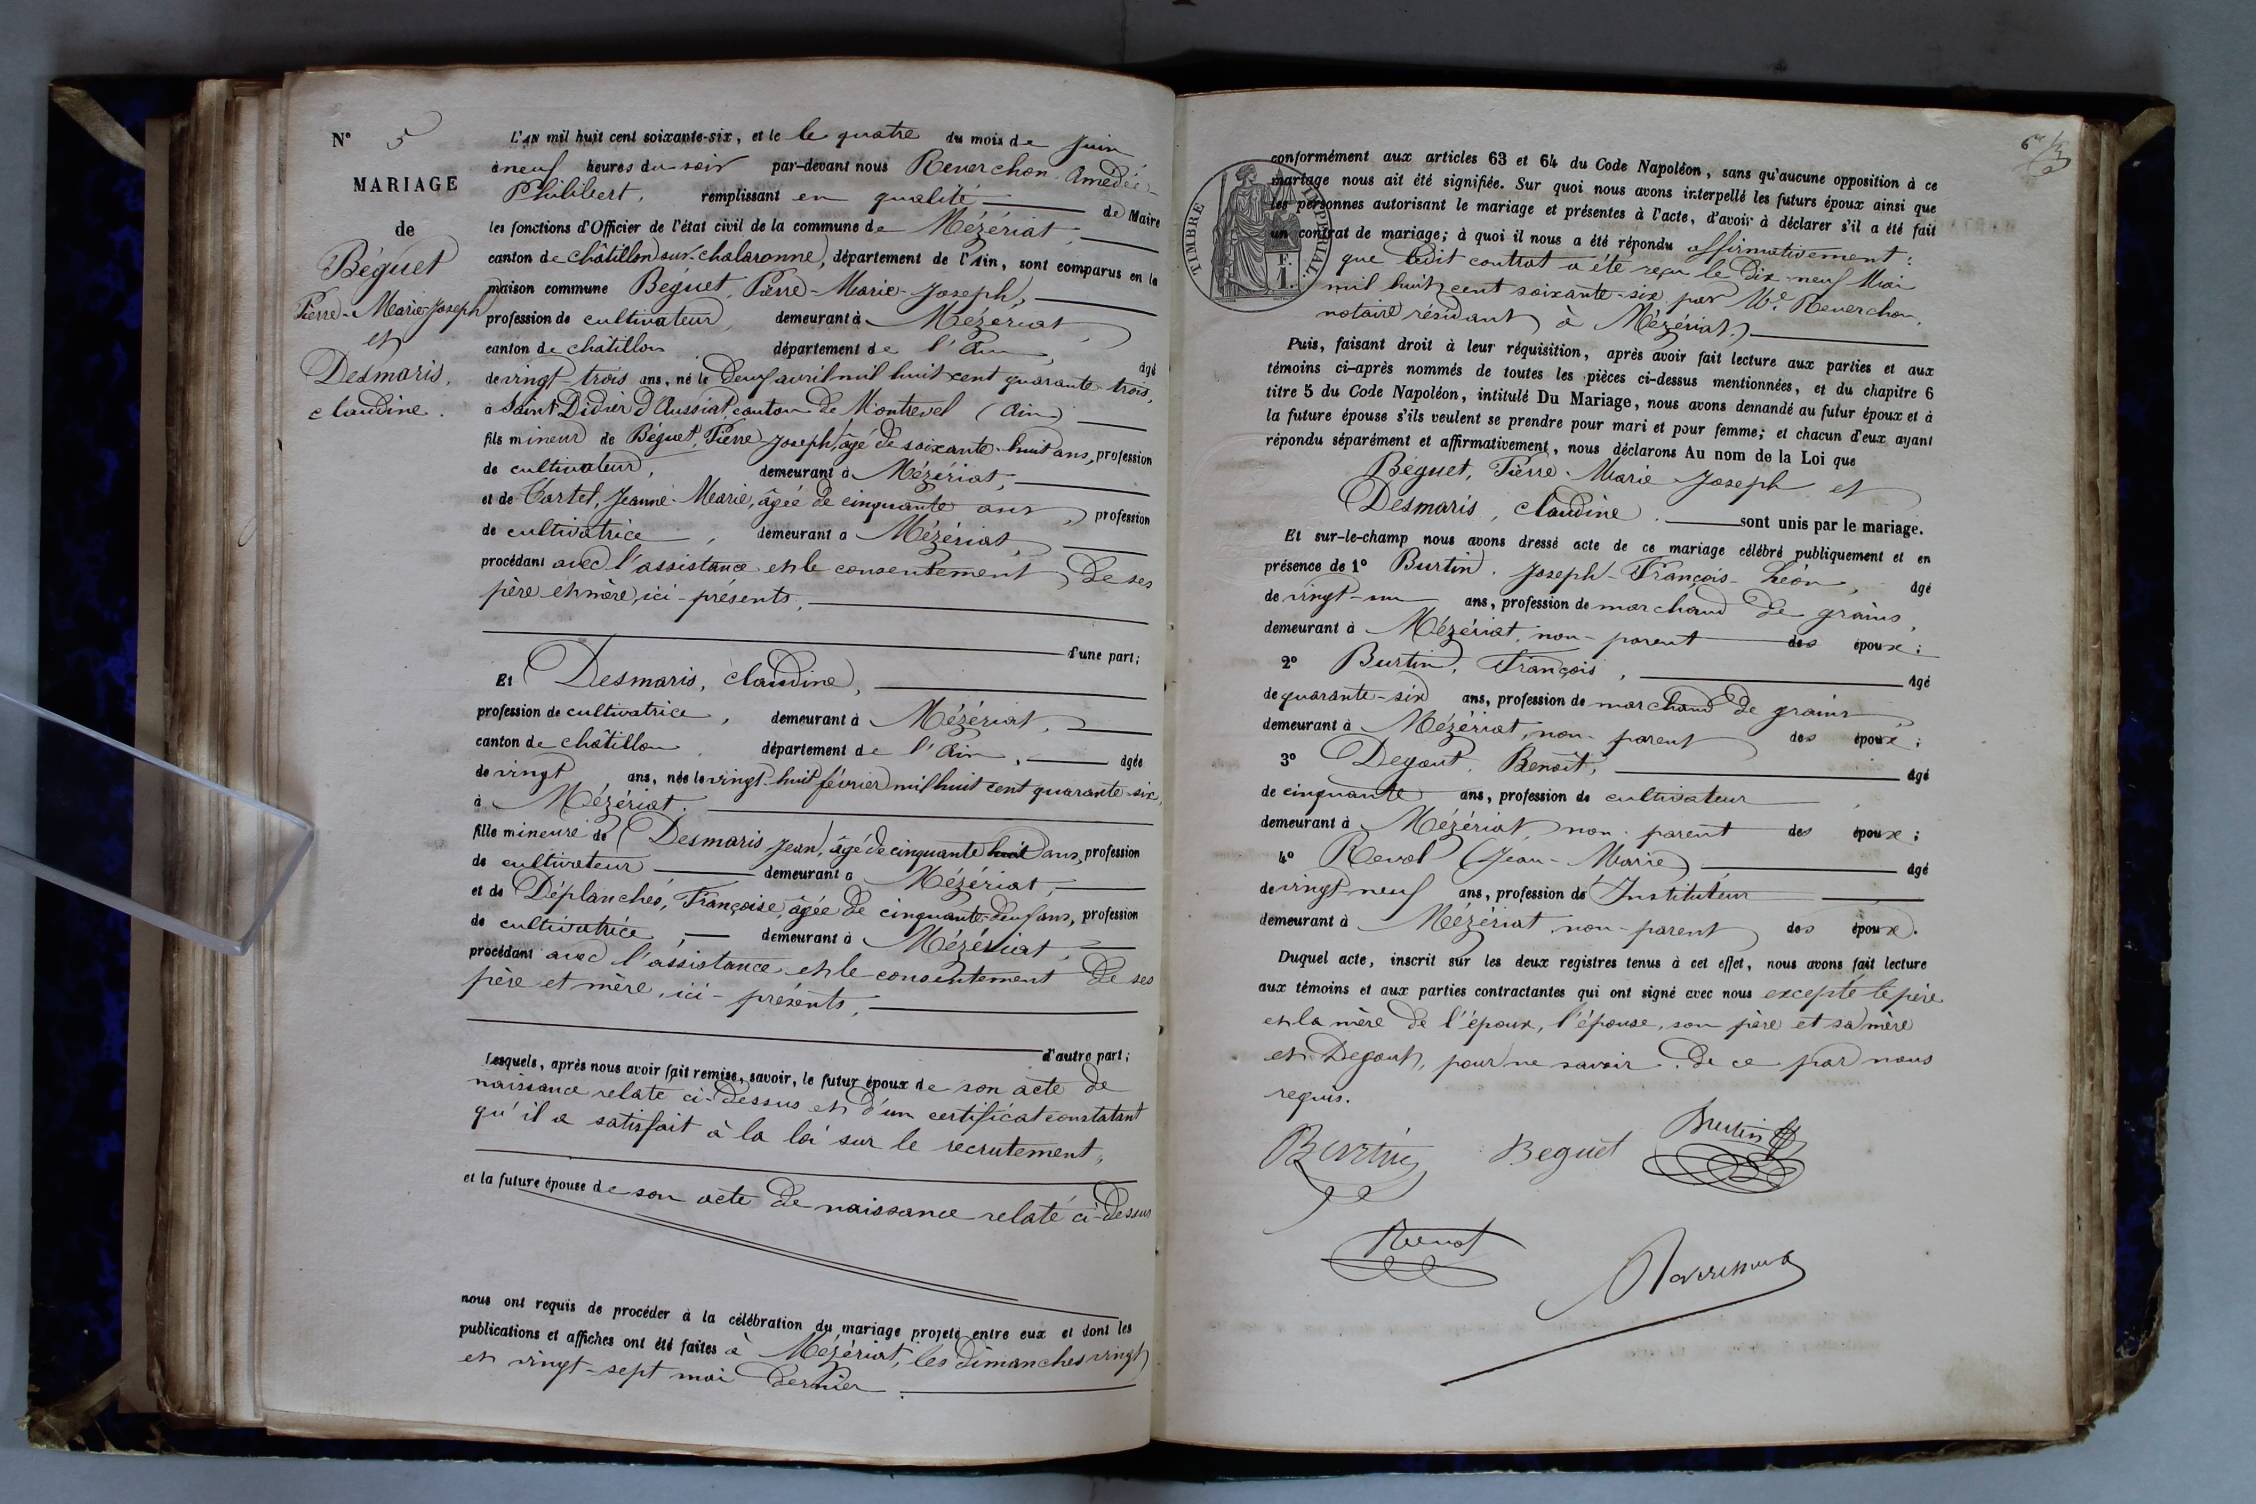 N° 5
MARIAGE
de
Béguet
Pierre-Marie-Joseph
et
Desmaris,
claudine.
L'AN mil huit cent soixante-six, et le le quatre du mois de Juin
à neuf heures du soir par-devant nous Reverchon Amédée-
Philibert, remplissant en qualité de Maire
les fonctions d'Officier de l'état civil de la commune de Mézériat,
canton de châtillon sur-chalaronne, département de l'Ain, sont comparus en la
maison commune Béguet, Pierre-Marie-Joseph,
profession de cultivateur, demeurant à Mézériat
canton de châtillon département de l'Ain, âgé
de vingt-trois ans, né le Deux avril mil huit cent quarante-trois,
à Saint Didier d'Aussiat, canton de Montrevel (Ain)
fils mineur de Béguet, Pierre Joseph, âgé de soixante-huit ans, profession
de cultivateur, demeurant à Mézériat,
et de Jeanne-Marie, âgée de cinquante ans, profession
de cultivatrice, demeurant à Mézériat,
procédant avec l'assistance et le consentement de ses
père et mère, ici-présents,
d'une part;
Et Desmaris, claudine,
profession de cultivatrice, demeurant à Mézériat,
canton de châtillon département de l'Ain, âgée
de vingt ans, née le vingt-huit février mil huit cent quarante-six,
à Mézériat.
fille mineure de Desmaris Jean, âgé de cinquante huit ans, profession
de cultivateur demeurant à Mézériat,
et de Déplanches, Françoise, âgée de cinquante-deux ans, profession
de cultivatrice, demeurant à Mézériat,
procédant avec l'assistance et le consentement de ses
père et mère, ici-présents,
d'autre part;
Lesquels, après nous avoir fait remise, savoir, le futur époux de son acte de
naissance relaté ci-dessus et d'un certificat constatant
qu'il a satisfait à la loi sur le recrutement,
et la future épouse de son acte de naissance relaté ci-dessus
nous ont requis de procéder à la célébration du mariage projeté entre eux et dont les
publications et affiches ont été faites à Mézériat, les dimanches vingt
et vingt-sept mai dernier.
TIMBRE IMPÉRIAL.
F.
1.
conformément aux articles 63 et 64 du Code Napoléon, sans qu'aucune opposition à ce
mariage nous ait été signifiée. Sur quoi nous avons interpellé les futurs époux ainsi que
les personnes autorisant le mariage et présentes à l'acte, d'avoir à déclarer s'il a été fait
un contrat de mariage; à quoi il nous a été répondu affirmativement:
que ledit contrat a été reçu le Dix-neuf Mai
mil huit cent soixante-six par Me Reverchon,
notaire résidant à Mézériat.
Puis, faisant droit à leur réquisition, après avoir fait lecture aux parties et aux
témoins ci-après nommés de toutes les pièces ci-dessus mentionnées, et du chapitre 6
titre 5 du Code Napoléon, intitulé Du Mariage, nous avons demandé au futur époux et à
la future épouse s'ils veulent se prendre pour mari et pour femme; et chacun d'eux ayant
répondu séparément et affirmativement, nous déclarons Au nom de la Loi que
Béguet, Pierre-Marie Joseph et
Desmaris, claudine. sont unis par le mariage.
Et sur-le-champ nous avons dressé acte de ce mariage célébré publiquement et en
présence de 1° Burtin, Joseph-François-Léon, âgé
de vingt-un ans, profession de marchand de grains,
demeurant à Mézériat, non-parent des époux;
2° Burtin, François, âgé
de quarante-six ans, profession de marchand de grains
demeurant à Mézériat, non-parent des époux;
3° Degout, Benoît, âgé
de cinquante ans, profession de cultivateur
demeurant à Mézériat, non-parent des époux;
4° Revol (Jean-Marie) âgé
de vingt-neuf ans, profession de Instituteur
demeurant à Mézériat, non-parent des époux.
Duquel acte, inscrit sur les deux registres tenus à cet effet, nous avons fait lecture
aux témoins et aux parties contractantes qui ont signé avec nous excepté le père
et la mère de l'époux, l'épouse, son père et sa mère
et Degout, pour ne savoir de ce par nous
requis.
Burtin Beguet Burtin
Revol Reverchon